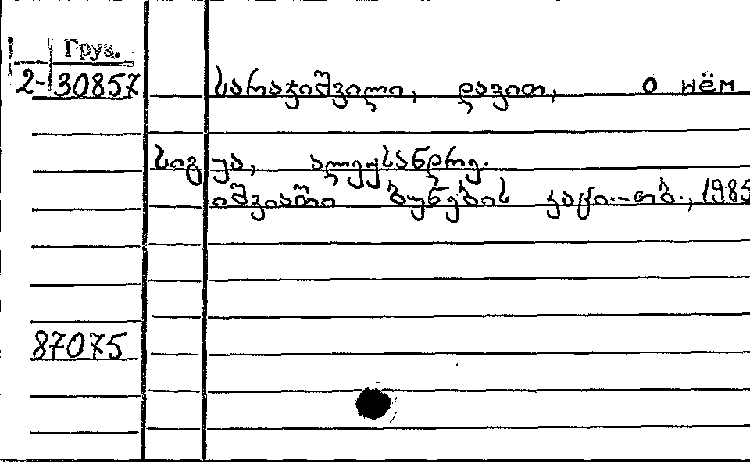 Груз.
2-30857
სარაჯიშვილი, დავით, о нём
სიგუა, ალექსანდრე.
იშვიათი ბუნების კაცი.-თბ., 1985
87075